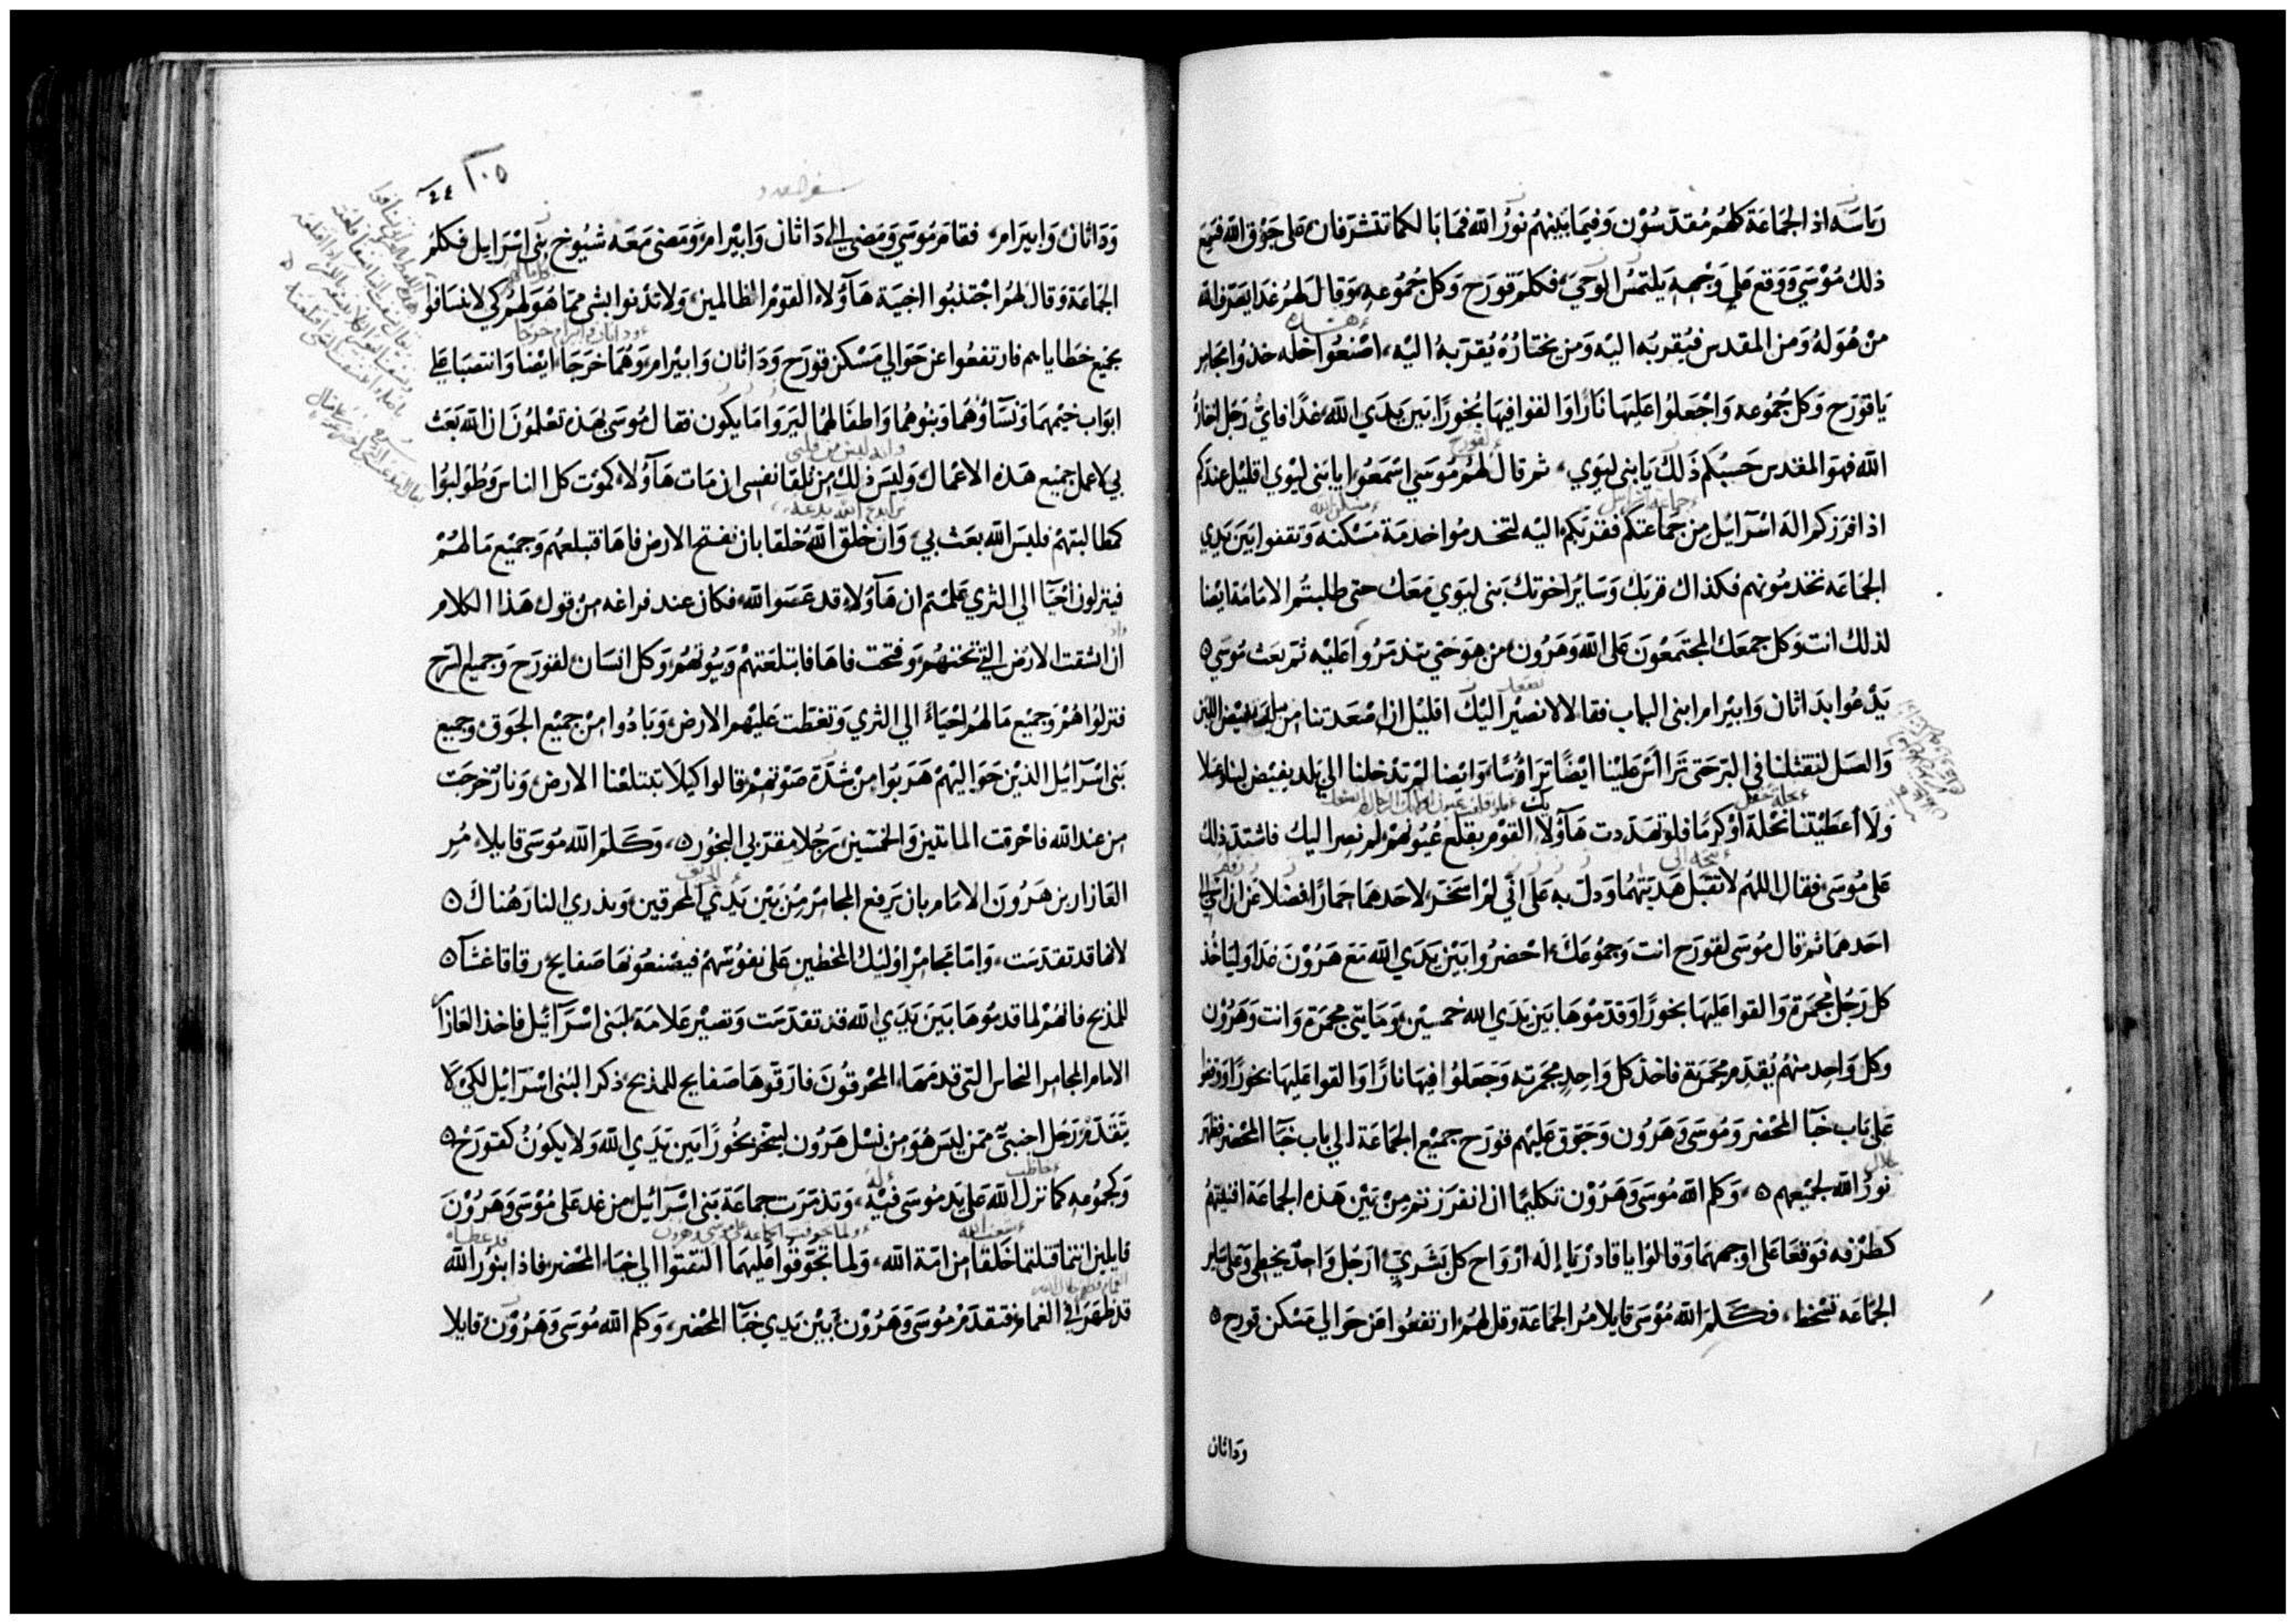 رياسه اذ الجماعة كلهم مقدسون وفيما بينهم نور الله فما بالكما تتشرفان على جوق الله فسمع
ذلك موسى ووقع على وجهه يلتمس الوحي فكلم قورح وكل جموعه وقال لهم غدا يعرف الله
من هو له ومن المقدس فيقربه اليه ومن يختاره يقربه اليه اصنعوا خله خذوا مجامر
يا قورح وكل جموعه واجعلوا عليها نارا والقوا فيها بخورا بين يدي الله غدا فاي رجل اختار
الله فهو المقدس حسبكم ذلك يا بني ليوي ثم قال لهم موسى اسمعوا يا بني ليوي اقليل عندكم
اذ افرزكم اله اسرائيل من جماعتكم فقربكم اليه لتخدموا خدمة مسكنه وتقفوا بين يدي
الجماعه تخدمونهم فكذاك قربك وسائر اخوتك بني ليوي معك حتى طلبتم الامامة ايضا
لذلك انت وكل جمعك المجتمعون على الله وهرون من هو حتى تتذمروا عليه ثم بعث موسى
يدعوا بداثان وابيرام ابني الياب فقالا لا نصير اليك اقليل اذ اصعدتنا من بلد يفيض اللبن
والعسل لتقتلنا في البر حتى تراأس علينا ايضا تراؤسا وايضا لم تدخلنا الي بلد يفيض لبنا وعسلا
ولا أعطيتنا نحلة او كرما فلو تهددت هآولا القوم بقلع عيونهم لم نصر اليك فاشتد ذلك
على موسى فقال اللهم لا تقبل هديتهما ودل به على اني لم اسخر لاحدهما حمارا فضلا عن ان اسي الى
احدهما ثم قال موسى لقورح انت وجموعك احضروا بين يدي الله مع هرون غدا وليأخذ
كل رجل مجمرة والقوا عليها بخورا وقدموها بين يدي الله خمسين ومايتي مجمرة وانت وهرون
وكل واحد منهم يقدم مجمرته فاخذ كل واحد مجمرته وجعلوا فيها نارا والقوا عليها بخورا ووقفوا
على باب خبا المحضر وموسى وهرون وجوق عليهم قورح جميع الجماعة الي باب خبا المحضر فظهر
نور الله لجميعهم وكلم الله موسى وهرون تكليما ان انفرزتم من بين هذه الجماعة افنيتهم
كطرفه فوقعا على اوجههما وقالوا يا قادر يا إله ارواح كل بشري أرجل واحد يخطي وعلى ساير
الجماعه تسخط فكلم الله موسى قايلا مر الجماعة وقل لهم ارتفعوا من حوالي مسكن قورح
وداثان
سفر العدد
١٠٥
وداثان وابيرام فقام موسى ومضى الى داثان وابيرام ومضى معه شيوخ بني اسرايل فكلم
الجماعة وقال لهم اجتنبوا اخبية هآولاء القوم الظالمين ولا تدنوا بشي مما هو لهم كي لا تنسافوا
بجميع خطاياهم فارتفعوا عن حوالي مسكن قورح وداثان وابيرام وهما خرجا ايضا وانتصبا على
ابواب خيمهما ونسآؤهما وبنوهما واطفالهما ليروا ما يكون فقال موسى بهذه تعلمون ان الله بعث
بي لاعمل جميع هذه الاعمال وليس ذلك من تلقا نفسي ان مات هآولاء كموت كل الناس وطولبوا
كمطالبتهم فليس الله بعث بي وان خلق الله خلقا بان تفتح الارض فاها فتبلعهم وجميع ما لهم
فينزلون احيآ الي الثري علمتم ان هآولاء قد عصوا الله فكان عند فراغه من قول هذا الكلام
ان انشقت الارض التي تحتهم وفتحت فاها فابتلعتهم وبيوتهم وكل انسان لقورح وجميع السرح
فنزلوا هم وجميع ما لهم احياء الي الثري وتغطت عليهم الارض وبادوا من جميع الجوق وجميع
بني اسرآئيل الذين حواليهم هربوا من شدة صوتهم قالوا كيلا تبتلعنا الارض ونار خرجت
من عند الله فاحرقت الماتين والخمسين رجلا مقربي البخور وكلم الله موسى قايلا مر
العازار بن هرون الامام بان يرفع المجامر من بين يدي المحرقين ويذري النار هناك
لانها قد تقدست واما مجامر اوليك المخطين على نفوسهم فيصنعونها صفايح رقاقا غشآ
للمذبح فانهم لما قدموها بين يدي الله قد تقدست وتصير علامة لبني اسرآئيل فاخذ العازار
الامام المجامر النحاس التي قدمها المحرقون فارقوها صفايح للمذبح ذكرا لبني اسرآئيل لكي لا
يتقدم رجل اجنبي ممن ليس هو من نسل هرون ليبخر بخورا بين يدي الله ولا يكون كقورح
وكجموعه كما نزل الله على يد موسى فيه وتذمرت جماعة بني اسرآئيل من غد على موسى وهرون
قايلين انتما قتلتما خلقا من امة الله ولما تجوقوا عليهما التفتوا الي خباء المحضر فاذا بنور الله
قد ظهر في الغمام فتقدم موسى وهرون بين يدي خبآ المحضر وكلم الله موسى وهرون قايلا